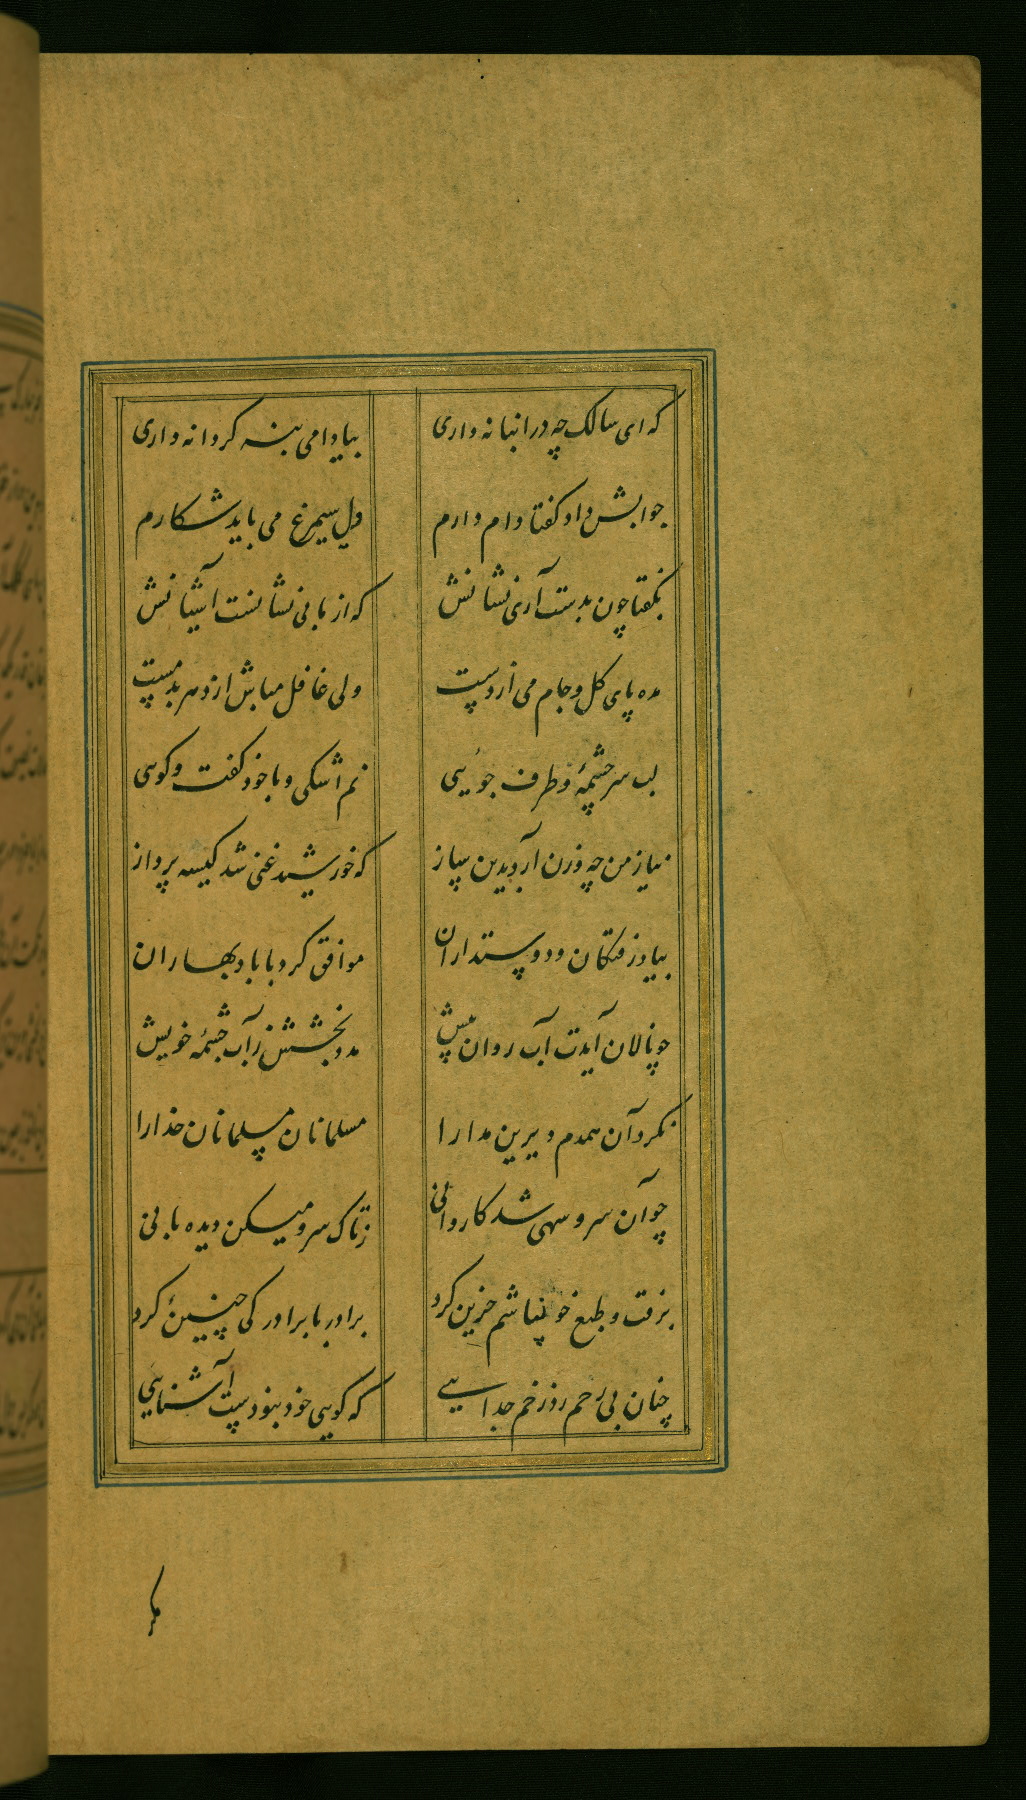 که ای سالک چه در انبانه داری بیا دامی بنه گر دانه داری
جوابش داد گفتا دام دارم ولی سیمرغ می باید شکارم
بگفتا چون بدست آری نشانش که از ما بی نشانست آشیانش
مده پای گل و جام می از دست ولی غافل مباش از دهر بدمست
لب سر چشمهٔ و طرف جویی نم اشکی و با خود گفت و گویی
نیاز من چه وزن آرد بدین ساز که خورشید غنی شد کیسه پرداز
بیاد رفتگان و دوستداران موافق گرد با باد بهاران
چو نالان آیدت آب روان پیش مدد بخشش ز آب چشمه خویش
نکرد آن همدم دیرین مدارا مسلمانان مسلمانان خدارا
چو آن سرو سهی شد کاروانی ز تاک سرو میکن دیده بانی
برفت و طبع خوشباشم حزین کرد برادر با برادر کی چنین کرد
چنان بی رحم زد زخم جدایی که گویی خود نبودست آشنایی
مکر